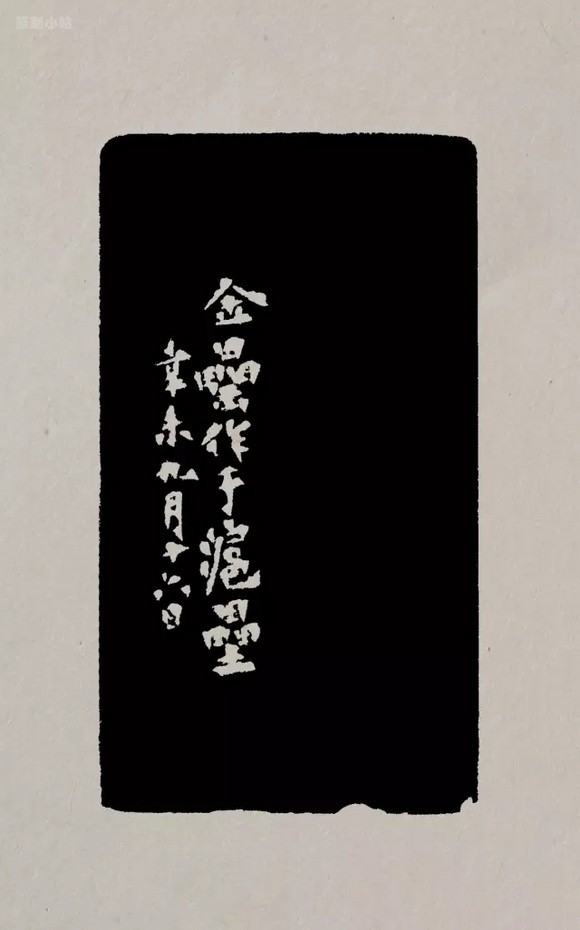 金罍作于滬壘
辛未九月十六日
篆刻小站